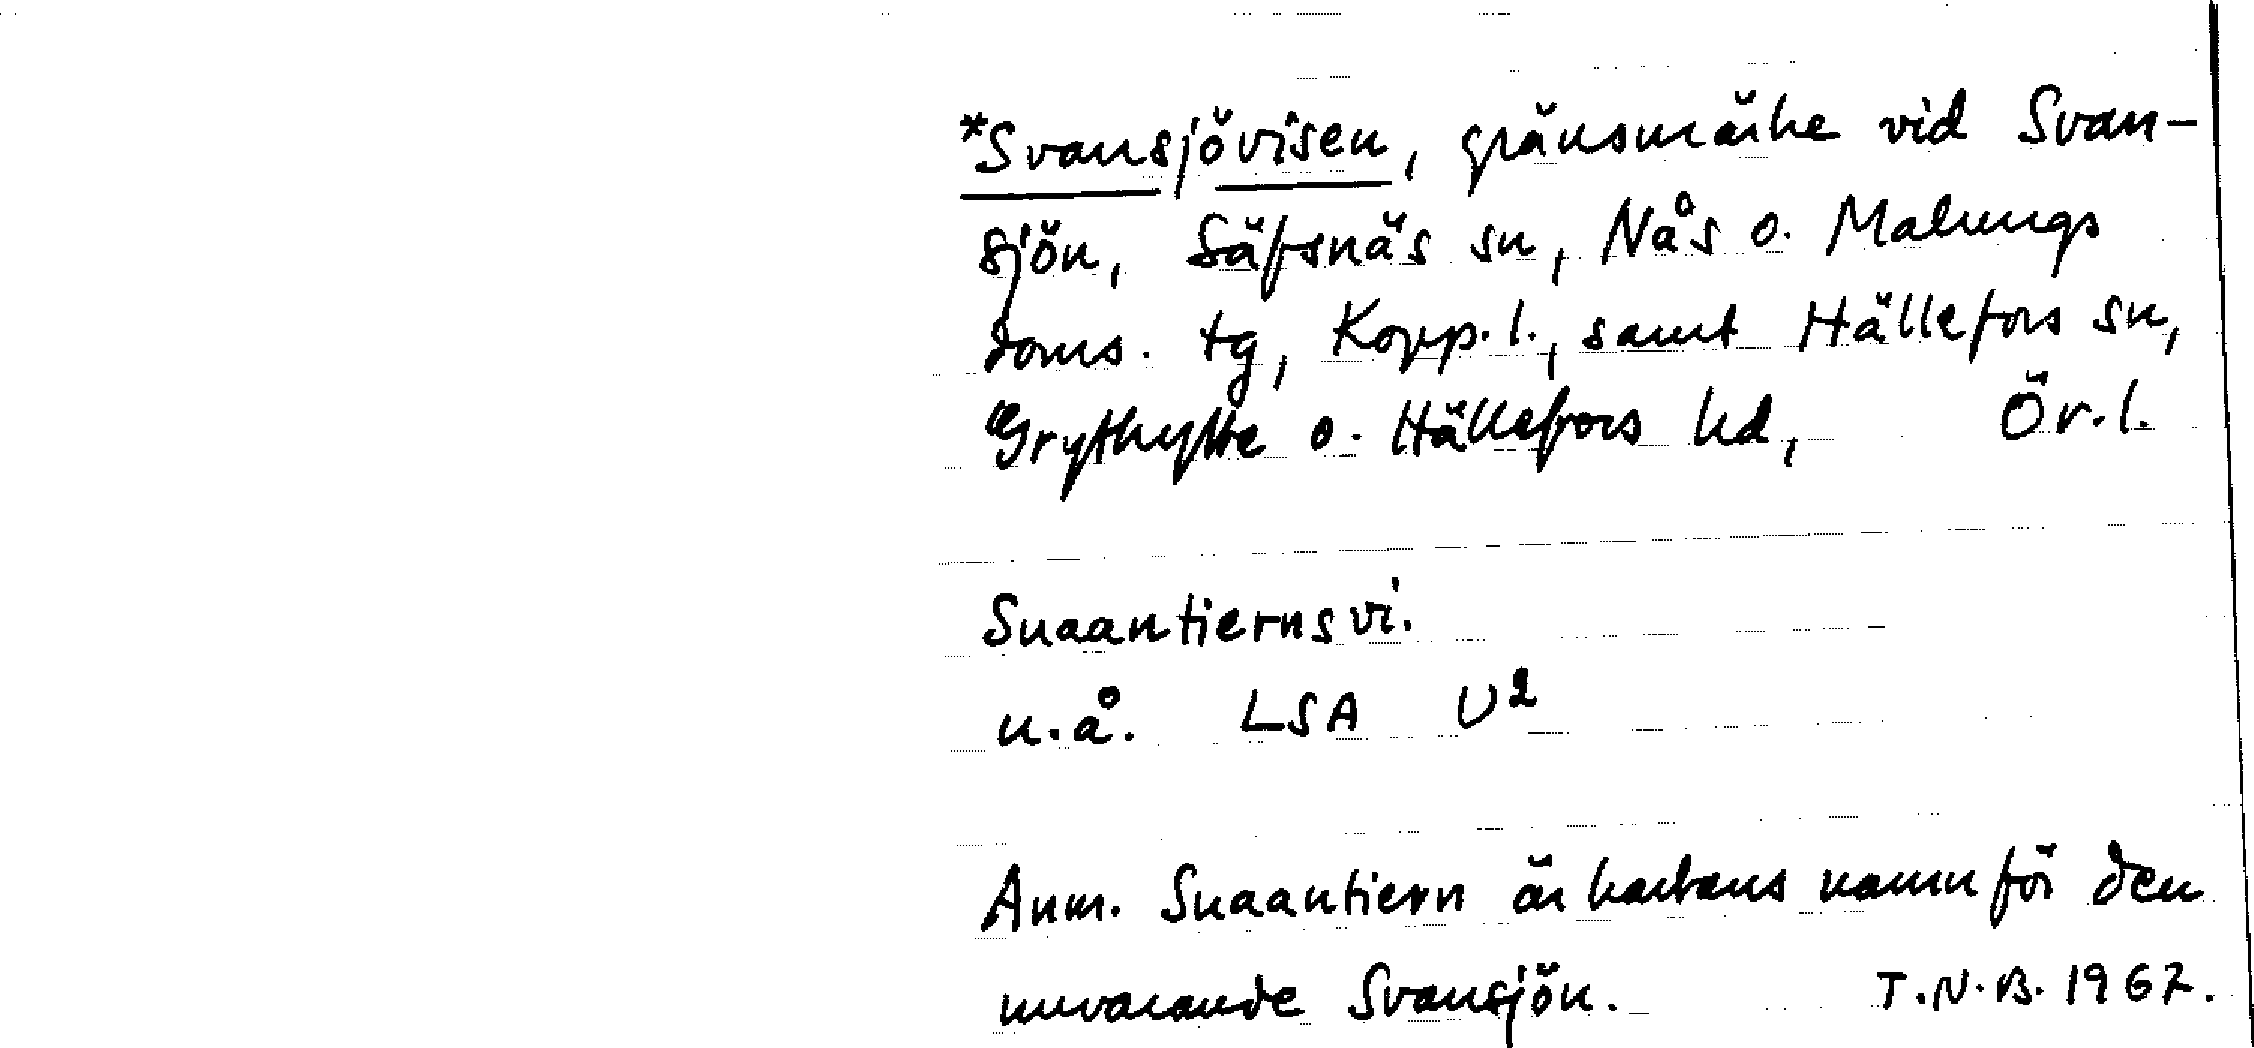 *Svansjövisen, gränsmärke vid Svan-
sjön, Säfsnäs sn, Nås o. Malungs
doms. tg, Kopp. l., samt Hällefors sn,
Grythytte o. Hällefors hd, Ör. l.
Suaantiernsvi.
u.å. LSA U²
Anm. Suaantiern är kartans namn för den
nuvarande Svansjön. T.N.B. 1967.